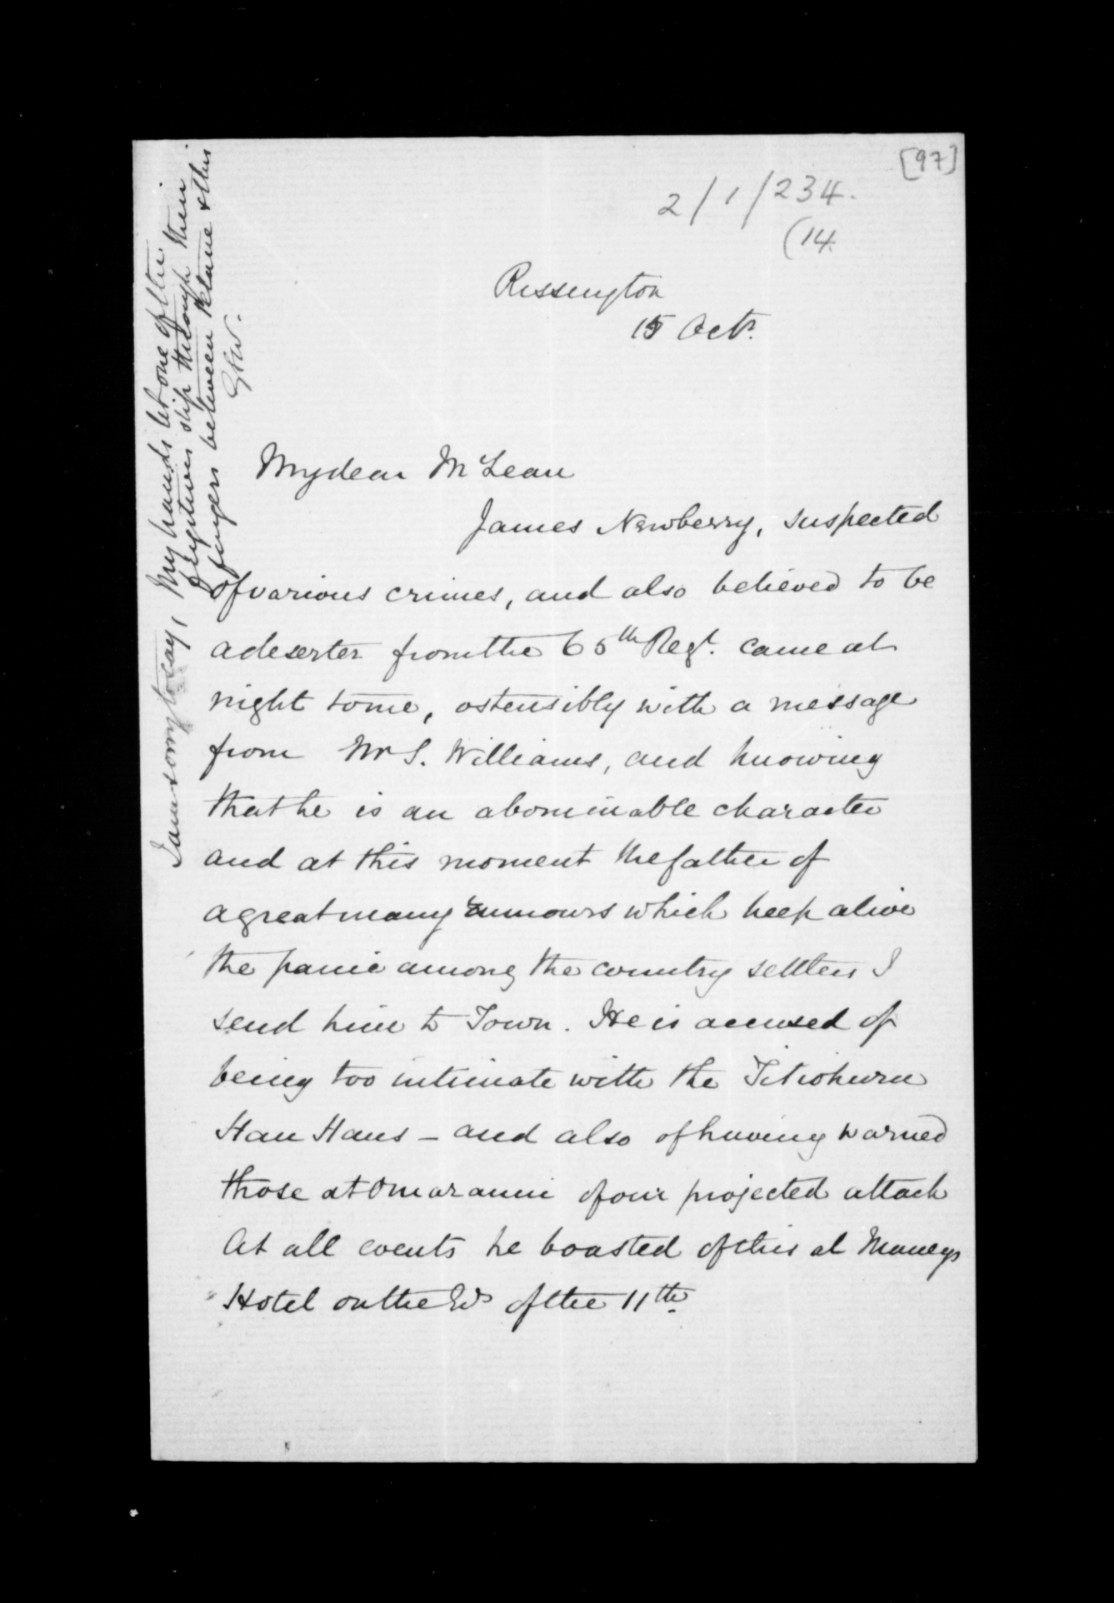 [97]
2/1/234.
(14.
Rissington
15 Octr.
My dear McLean
James Newberry, suspected
of various crimes, and also believed to be
a deserter from the 65th Regt. came at
night to me, ostensibly with a message
from Mr S. Williams, and knowing
that he is an abominable character
and at this moment the father of
a great many rumours which keep alive
the panic among the country settlers I
send him to Town. He is accused of
being too intimate with the Titiokura
Hau Haus – and also of having warned
those at Omarunui of our projected attack
At all events he boasted of this at Maneys
Hotel on the Ev of the 11th.
I am sorry to say, my hands let one of the
fugitives slip through their
fingers between Petane & this
GSW.